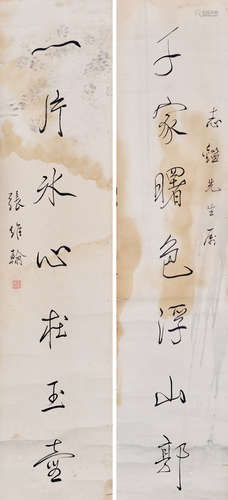 志鑑先生屬
千家曙色浮山郭
一片氷心在玉壺
張維翰